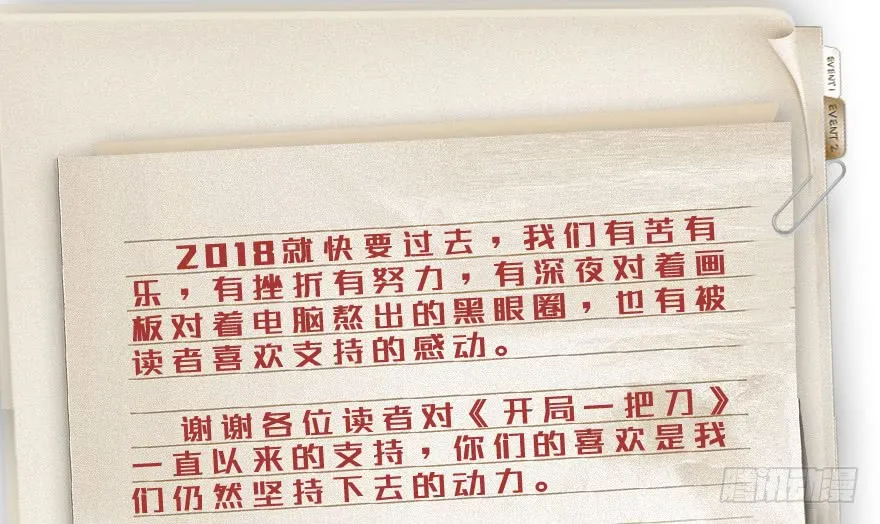 EVENT 1
EVENT 2
2018就快要过去，我们有苦有
乐，有挫折有努力，有深夜对着画
板对着电脑熬出的黑眼圈，也有被
读者喜欢支持的感动。
谢谢各位读者对《开局一把刀》
一直以来的支持，你们的喜欢是我
们仍然坚持下去的动力。
腾讯动漫